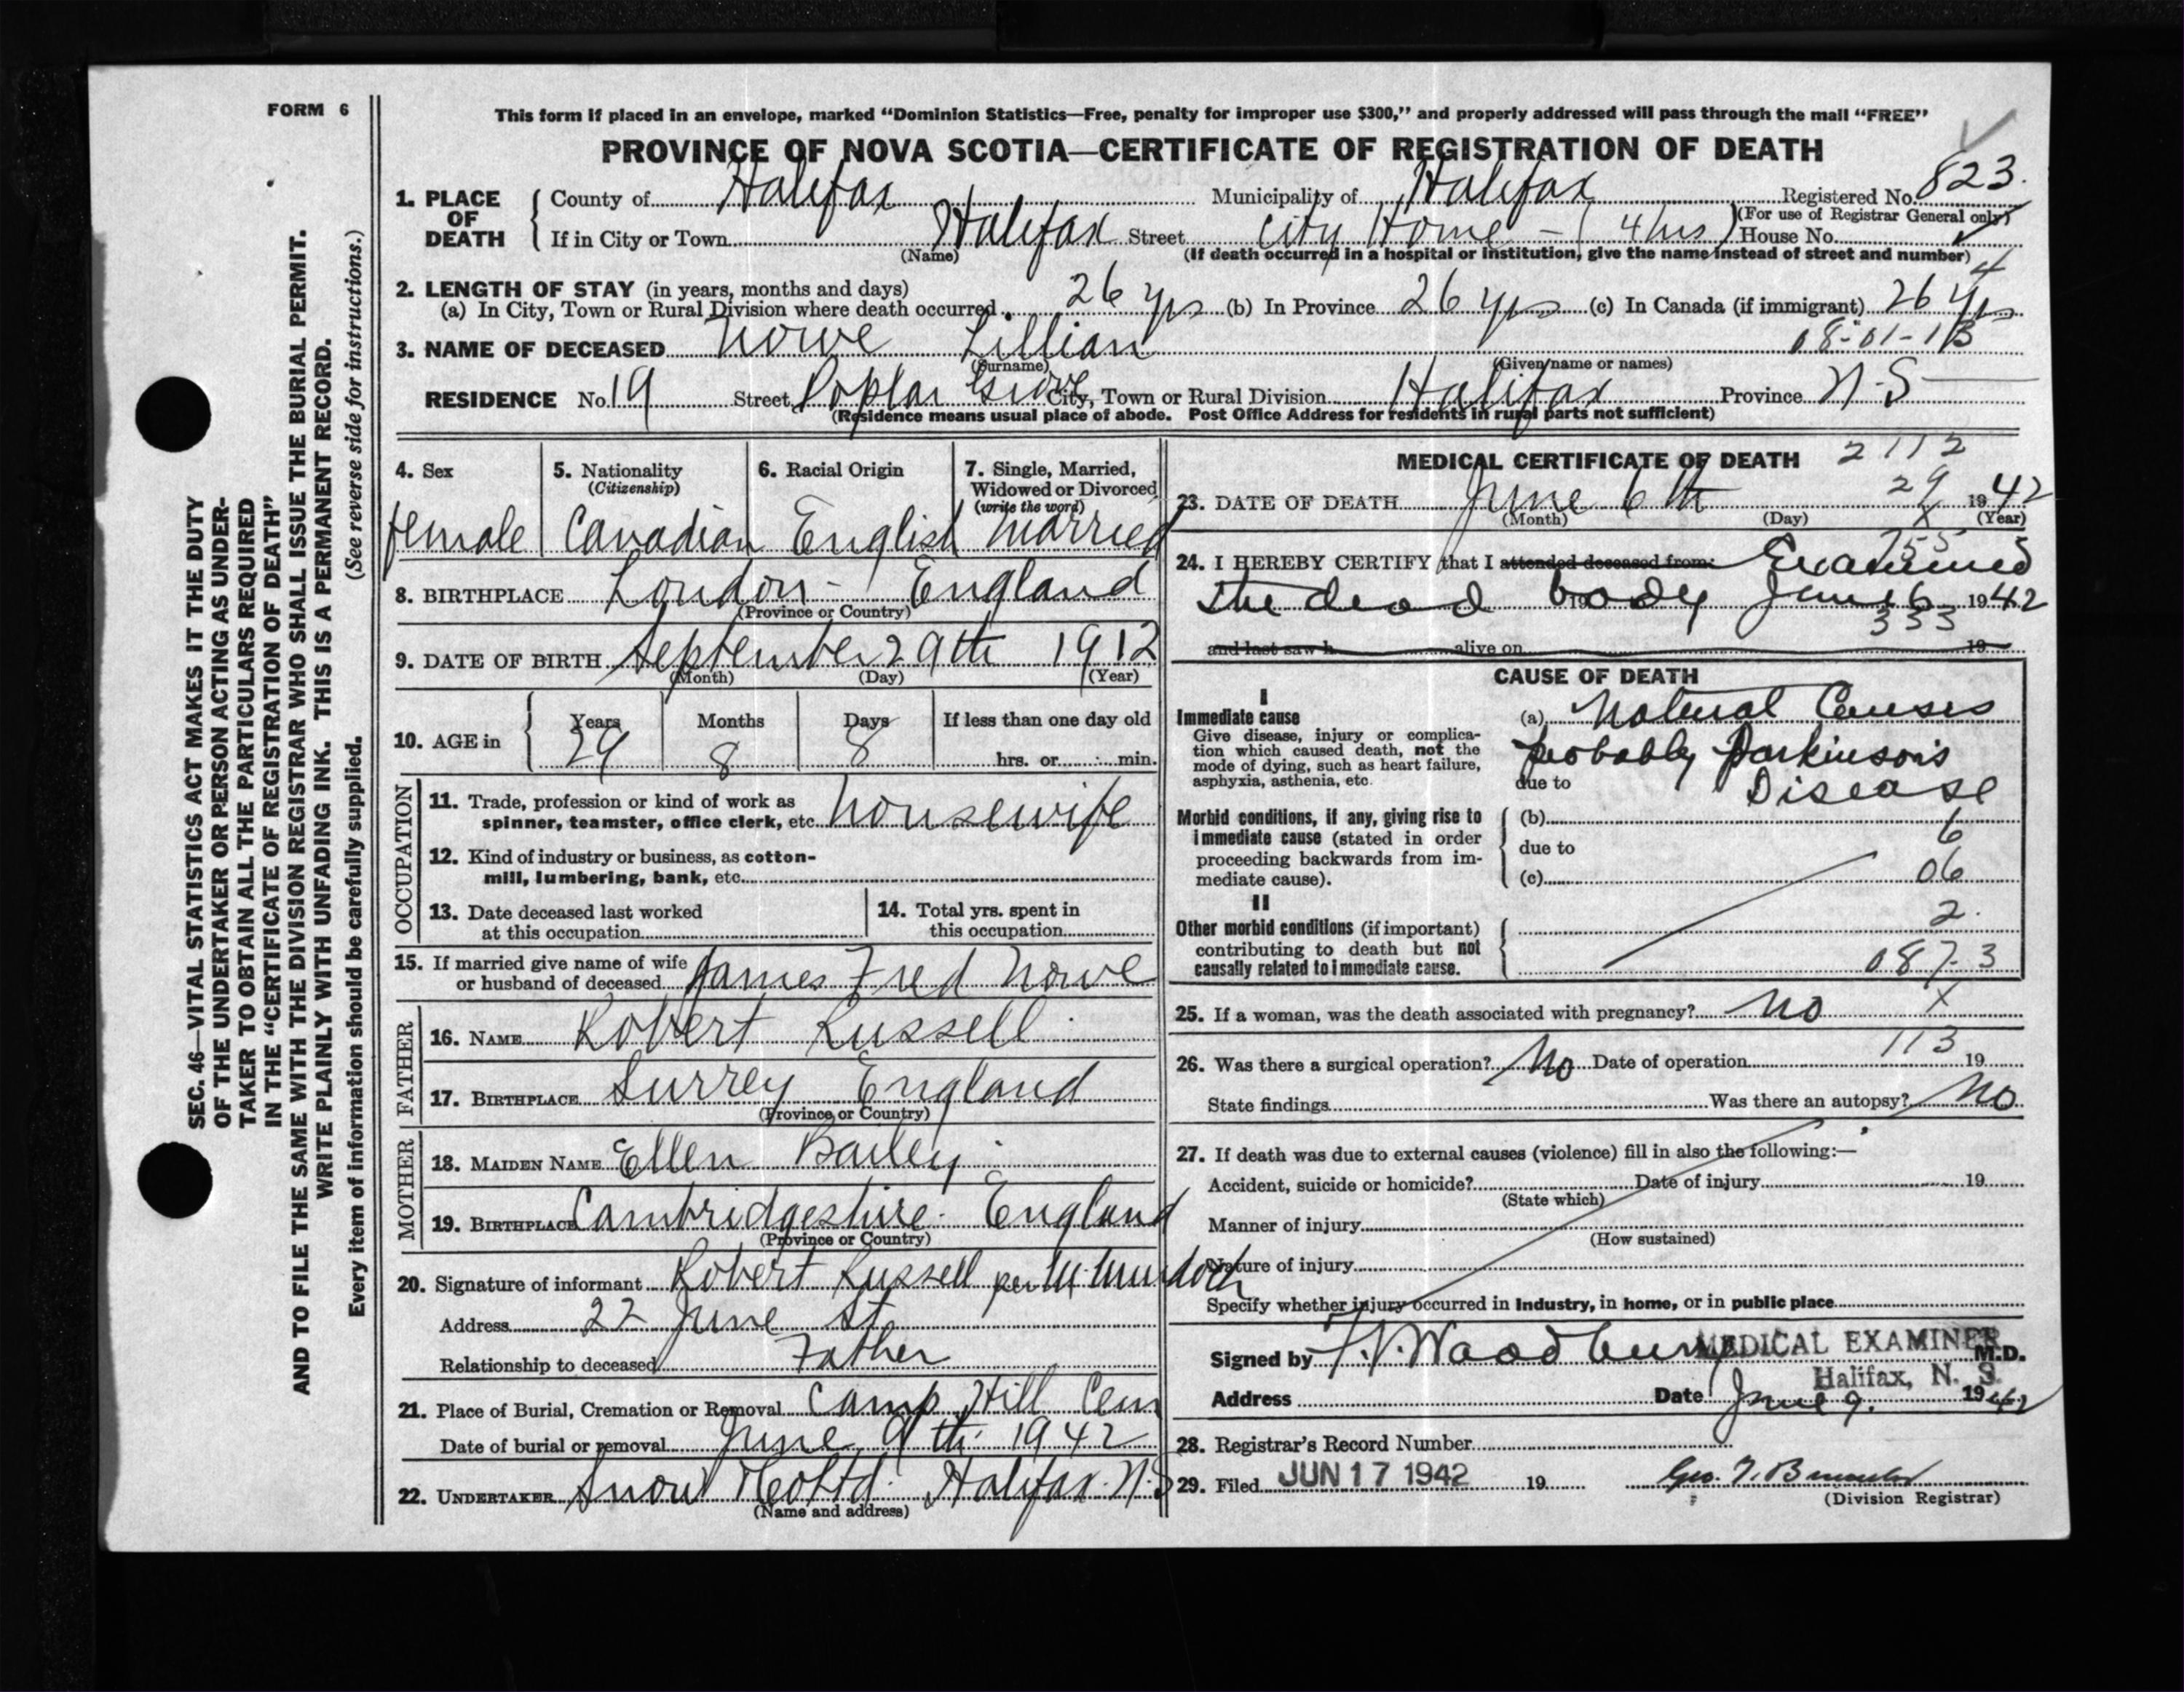 FORM 6
This form if placed in an envelope, marked “Dominion Statistics—Free, penalty for improper use $300,” and properly addressed will pass through the mail “FREE”
PROVINCE OF NOVA SCOTIA—CERTIFICATE OF REGISTRATION OF DEATH
1. PLACE OF DEATH County of Halifax Municipality of Halifax Registered No. 823.
(For use of Registrar General only)
If in City or Town Halifax Street City Home - (4 hrs) House No.
(Name) (If death occurred in a hospital or institution, give the name instead of street and number)
4
2. LENGTH OF STAY (in years, months and days)
(a) In City, Town or Rural Division where death occurred 26 yrs (b) In Province 26 yrs (c) In Canada (if immigrant) 26 yrs
08-01-13
3. NAME OF DECEASED Nowe Lillian
(Surname) (Given name or names)
RESIDENCE No. 19 Street Poplar Grove City, Town or Rural Division Halifax Province N-S
(Residence means usual place of abode. Post Office Address for residents in rural parts not sufficient)
4. Sex 5. Nationality (Citizenship) 6. Racial Origin 7. Single, Married, Widowed or Divorced (write the word)
female Canadian English married
8. BIRTHPLACE London - England
(Province or Country)
9. DATE OF BIRTH September 29th 1912
(Month) (Day) (Year)
10. AGE in Years Months Days If less than one day old
29 8 8 hrs. or min.
OCCUPATION
11. Trade, profession or kind of work as
spinner, teamster, office clerk, etc. housewife
12. Kind of industry or business, as cotton-
mill, lumbering, bank, etc.
13. Date deceased last worked
at this occupation
14. Total yrs. spent in
this occupation
15. If married give name of wife
or husband of deceased James Fred Nowe
FATHER
16. NAME Robert Russell
17. BIRTHPLACE Surrey England
(Province or Country)
MOTHER
18. MAIDEN NAME Ellen Bailey
19. BIRTHPLACE Cambridgeshire - England
(Province or Country)
20. Signature of informant Robert Russell per M. Murdoch
Address 22 June St
Relationship to deceased Father
21. Place of Burial, Cremation or Removal Camp Hill Cem
Date of burial or removal June 9th 1942
22. UNDERTAKER Snow & Co Ltd. Halifax. N.S
(Name and address)
MEDICAL CERTIFICATE OF DEATH 2112
29
23. DATE OF DEATH June 6th 1942
(Month) (Day) X (Year)
755
24. I HEREBY CERTIFY that I attended deceased from: Examined
the dead body 19 June 6 1942
333
and last saw h alive on 19
CAUSE OF DEATH
I
Immediate cause
Give disease, injury or complica-
tion which caused death, not the
mode of dying, such as heart failure,
asphyxia, asthenia, etc.
(a) Natural Causes
probably Parkinson's
due to Disease
Morbid conditions, if any, giving rise to
immediate cause (stated in order
proceeding backwards from im-
mediate cause).
(b)
6
due to
(c) 06
II
Other morbid conditions (if important)
contributing to death but not
causally related to immediate cause.
2.
087-3
25. If a woman, was the death associated with pregnancy? No X
113
26. Was there a surgical operation? No Date of operation 19
State findings Was there an autopsy? No
27. If death was due to external causes (violence) fill in also the following:—
Accident, suicide or homicide? Date of injury 19
(State which)
Manner of injury
(How sustained)
Nature of injury
Specify whether injury occurred in Industry, in home, or in public place
Signed by Woodbury MEDICAL EXAMINER M.D.
Halifax, N. S.
Address Date June 9. 1942
28. Registrar's Record Number
29. Filed JUN 17 1942 19 Geo.
(Division Registrar)
SEC. 46—VITAL STATISTICS ACT MAKES IT THE DUTY
OF THE UNDERTAKER OR PERSON ACTING AS UNDER-
TAKER TO OBTAIN ALL THE PARTICULARS REQUIRED
IN THE “CERTIFICATE OF REGISTRATION OF DEATH”
AND TO FILE THE SAME WITH THE DIVISION REGISTRAR WHO SHALL ISSUE THE BURIAL PERMIT.
WRITE PLAINLY WITH UNFADING INK. THIS IS A PERMANENT RECORD.
Every item of information should be carefully supplied. (See reverse side for instructions.)